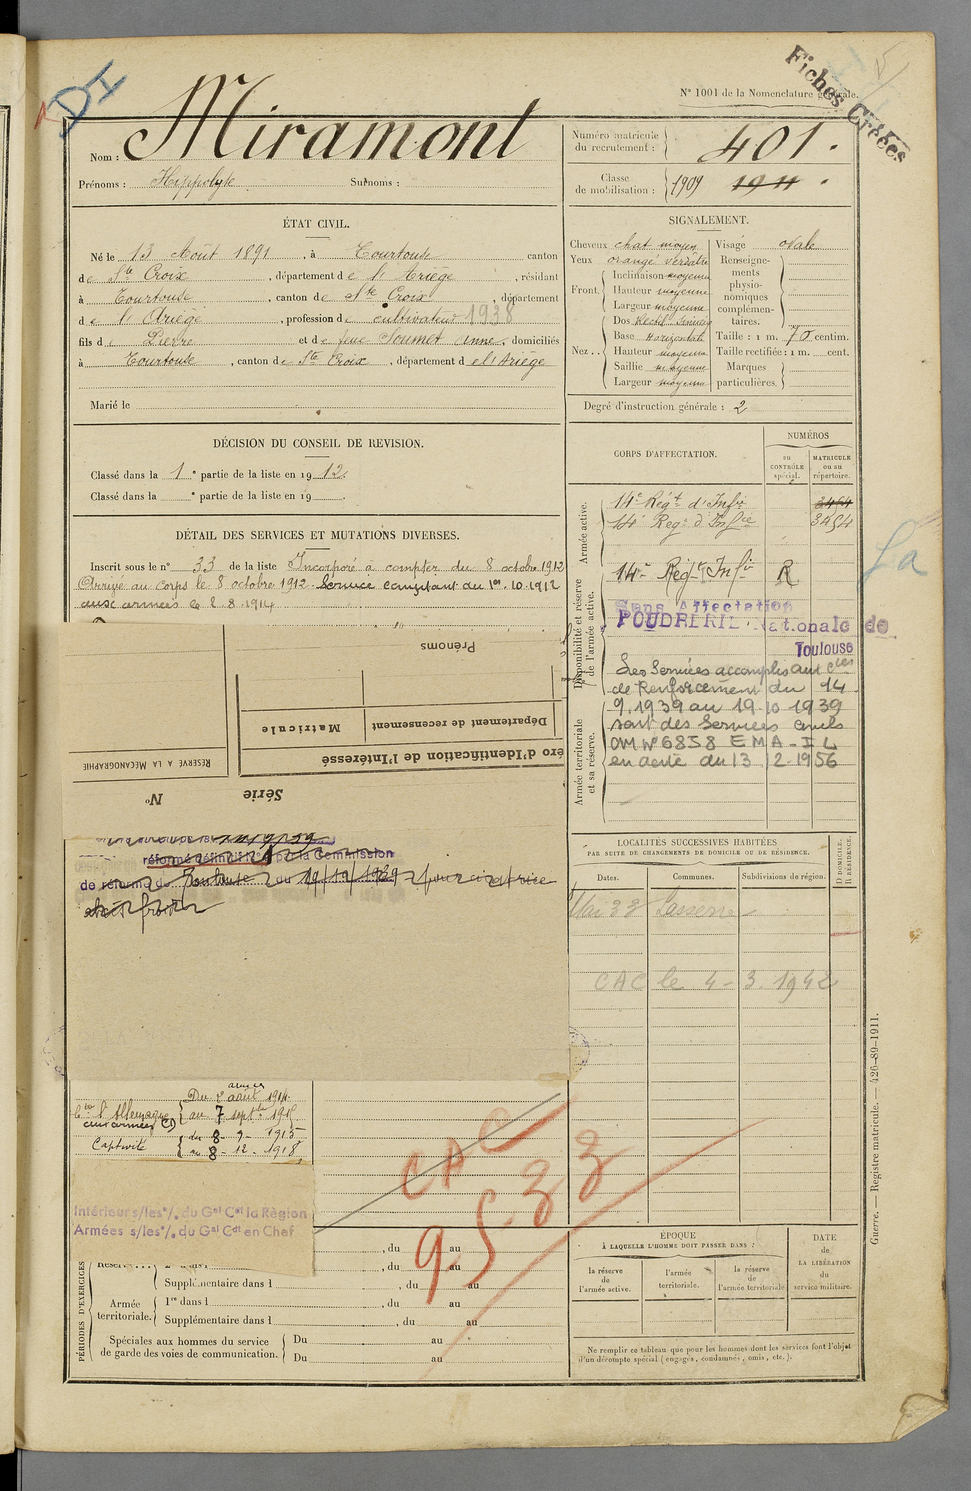 DI
Fiches Créées
N° 1001 de la Nomenclature générale.
Nom : Miramont
Prénoms : Hippolyte Surnoms :
Numéro matricule du recrutement : 401.
Classe de mobilisation : 1909 1911.
ÉTAT CIVIL.
Né le 13 Août 1891, à Tourtouse canton
de Ste Croix, département de l'Ariège, résidant
à Tourtouse, canton de Ste Croix, département
de l'Ariège, profession de cultivateur 1938
fils de Pierre et de feue Soumet Anne, domiciliés
à Tourtouse, canton de Ste Croix, département de l'Ariège
Marié le
SIGNALEMENT.
Cheveux chat moyen
Yeux orangé verdâtre
Front. Inclinaison moyenne
Hauteur moyenne
Largeur moyenne
Nez.. Dos Rectil. sinueux
Base Horizontale
Hauteur moyenne
Saillie moyenne
Largeur moyenne
Visage ovale
Renseignements physionomiques complémentaires.
Taille : 1 m. 70 centim.
Taille rectifiée : 1 m. cent.
Marques particulières.
Degré d'instruction générale : 2
DÉCISION DU CONSEIL DE REVISION.
Classé dans la 1e partie de la liste en 1912.
Classé dans la e partie de la liste en 19
DÉTAIL DES SERVICES ET MUTATIONS DIVERSES.
Inscrit sous le n° 33 de la liste Incorporé à compter du 8 octobre 1912
Arrivé au corps le 8 octobre 1912. Service comptant du 1er.10.1912
aux armées le 2.8.1914
Prénoms
Matricule
Département de recensement
éro d'Identification de l'Intéressé
RÉSERVÉ À LA MÉCANOGRAPHIE
Série
N°
réformé définitif N° 1 par la Commission
de réforme de Toulouse du 19/10/1939 pour cicatrice
CORPS D'AFFECTATION.
NUMÉROS
au CONTRÔLE spécial.
MATRICULE ou au répertoire.
Armée active.
14e Régt d'Infie 3454
14e Regt d'Infie 3454
Disponibilité et réserve de l'armée active.
14e Régt Infie R
Sans Affectation
POUDRERIE Nationale de
Toulouse
La
Armée territoriale et sa réserve.
Les Services accomplis aux Cies
de Renforcement du 14
9.1939 au 19.10.1939
sont des Services civils
OM N° 6858 EMA-IL
en date du 13 12-1956
LOCALITÉS SUCCESSIVES HABITÉES
PAR SUITE DE CHANGEMENTS DE DOMICILE OU DE RÉSIDENCE.
Dates. Communes. Subdivisions de région.
D DOMICILE. R RÉSIDENCE.
Mai 33 Lasserre
CAC le 4-3.1942
Cre l'Allemagne
aux armées CD
Du 2 août 1914
armées
au 7 septbre 1915
Captivité
du 8-9-1915
au 8-12-1918
Intérieur s/les°/. du Gal Cdt la Région
Armées s/les°/. du Gal Cdt en Chef
CAC
9 5.33
PÉRIODES D'EXERCICES
, du au
, du au
Supplémentaire dans l , du au
Armée territoriale.
1re dans l , du au
Supplémentaire dans l , du au
Spéciales aux hommes du service de garde des voies de communication.
Du au
Du au
ÉPOQUE
À LAQUELLE L'HOMME DOIT PASSER DANS :
la réserve de l'armée active.
l'armée territoriale.
la réserve de l'armée territoriale
DATE de LA LIBÉRATION du service militaire.
Ne remplir ce tableau que pour les hommes dont les services font l'objet
d'un décompte spécial (engagés, condamnés, omis, etc.).
Guerre. — Registre matricule. — 426-89-1911.